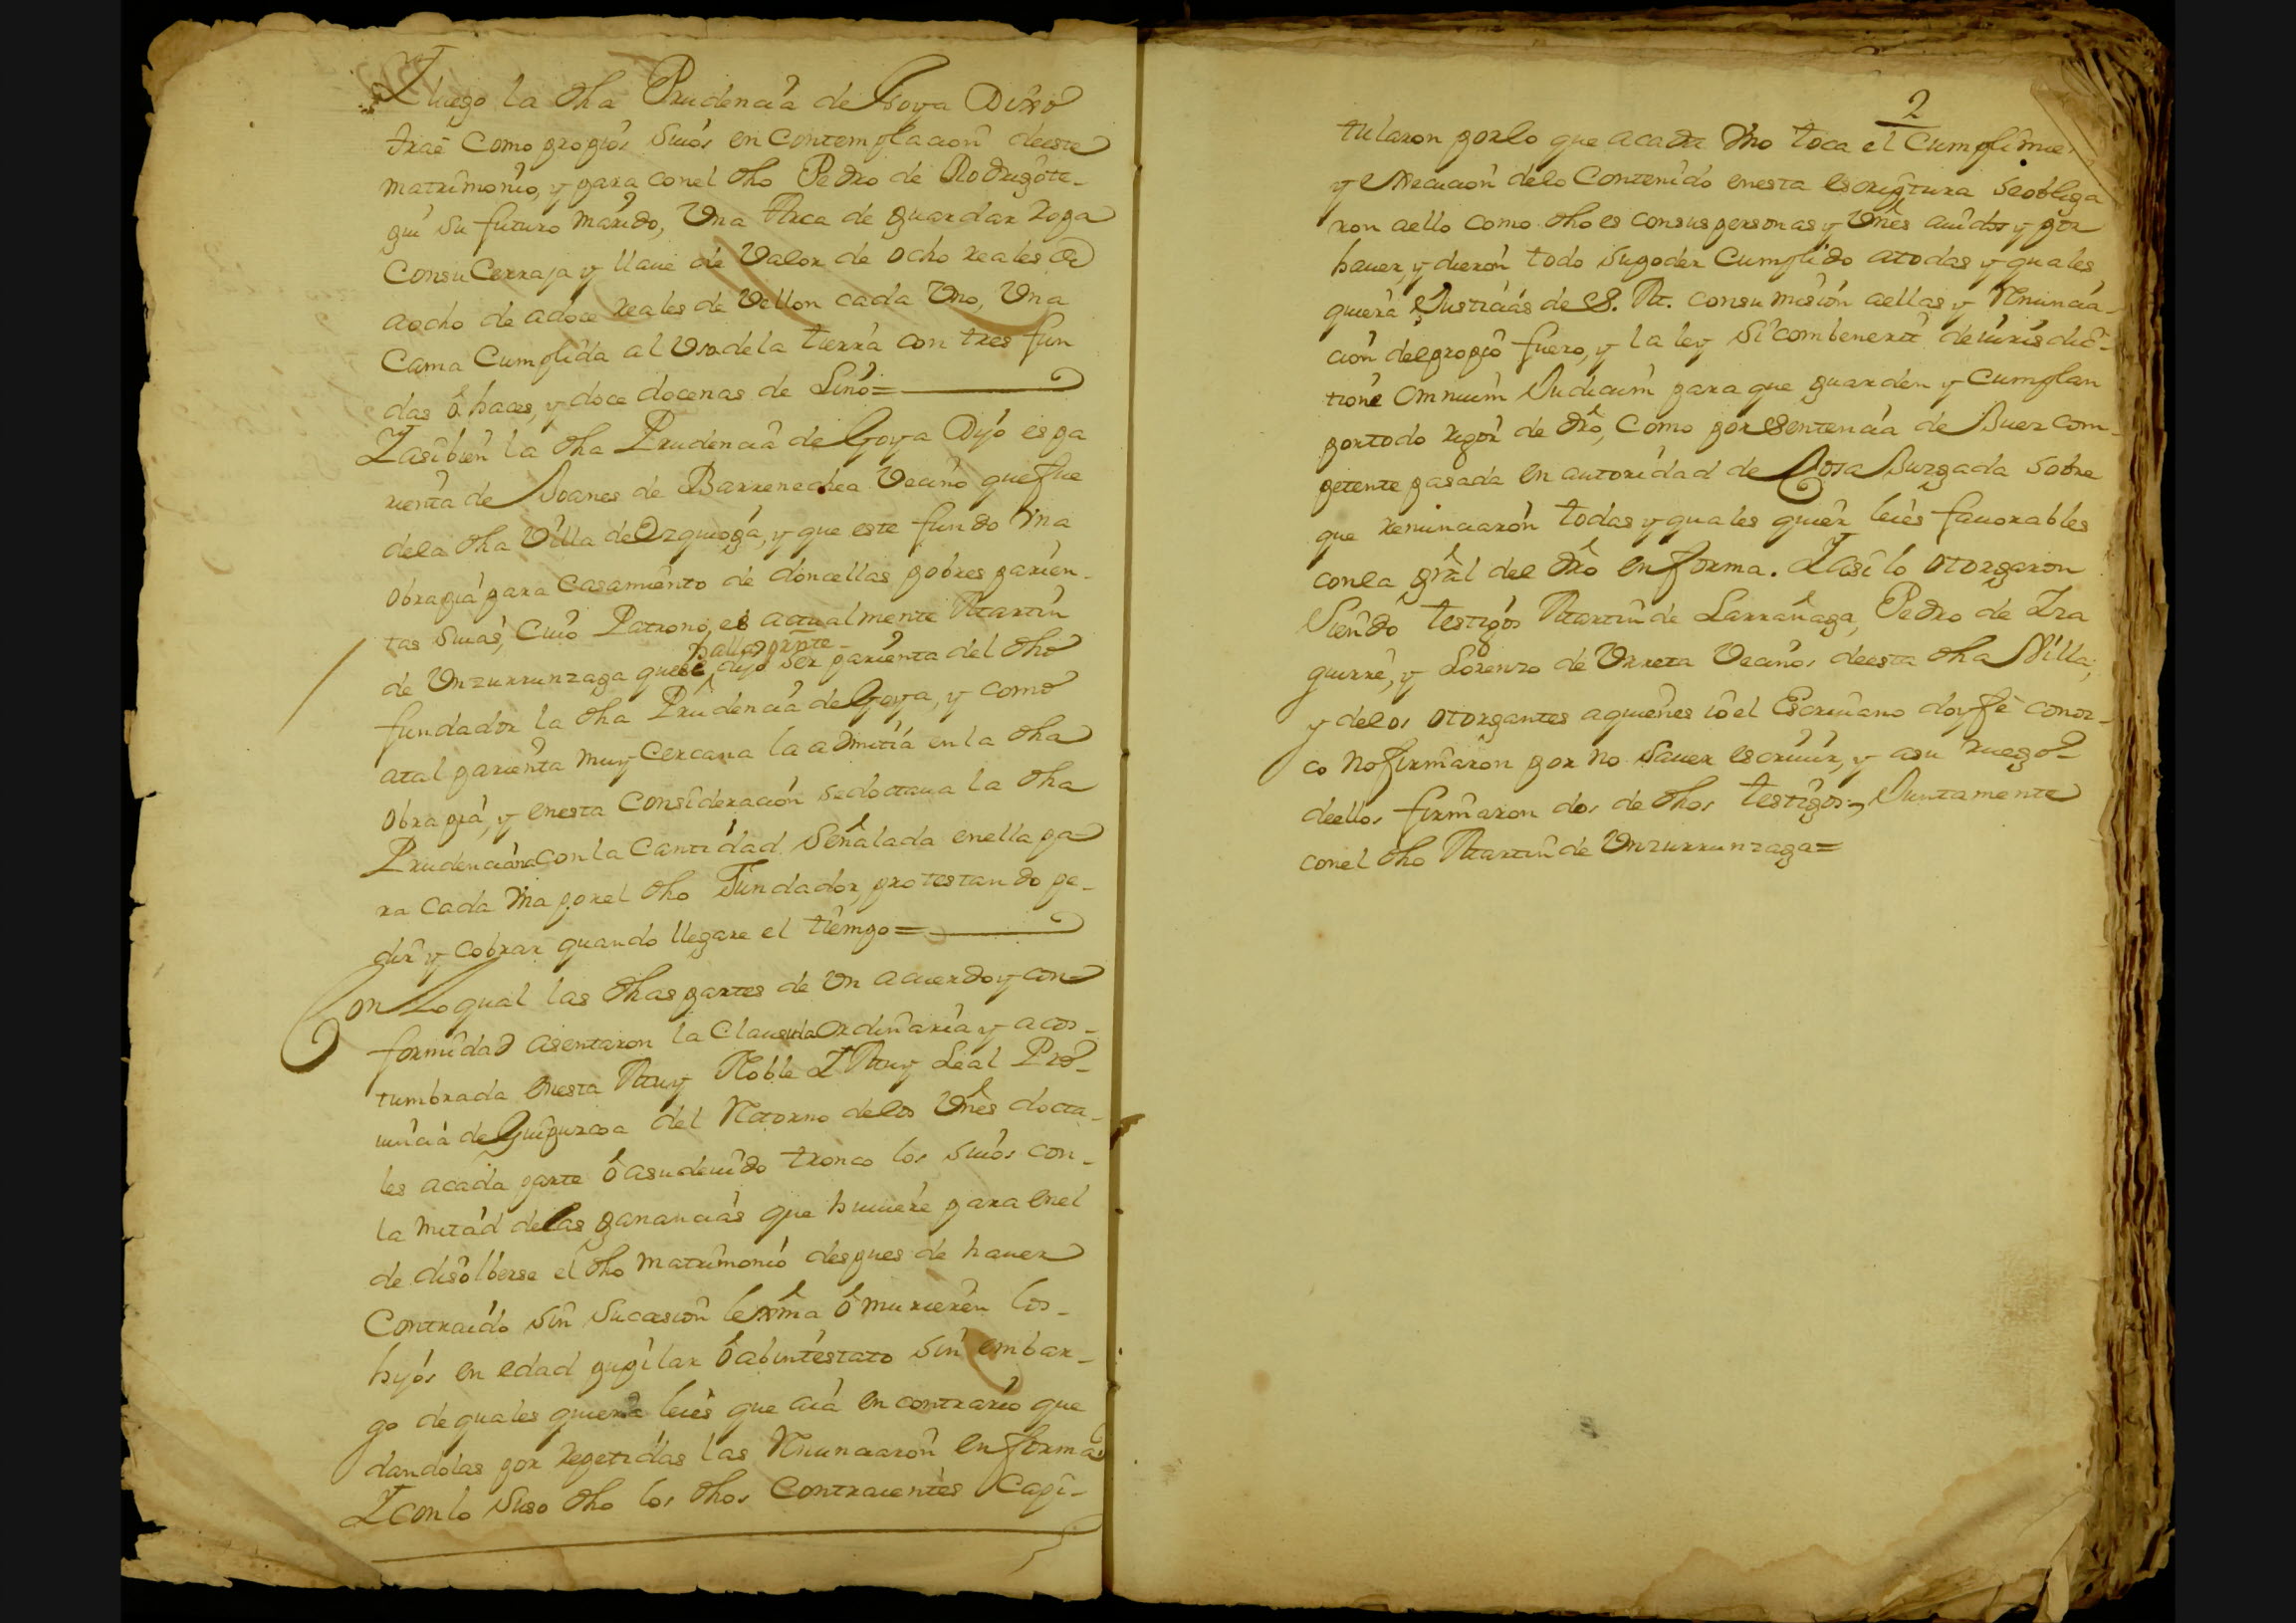 Y luego la dha Prudencia de Goya Dixo
trae Como propios suios en Contemplacion deeste
matrimonio, y para conel dho Pedro de Rodrigote-
gui su futuro marido, Una Arca de guardar ropa
Consu Cerraja y llaue de Valor de ocho reales de
aocho de adoce reales de Vellon cada Uno, Una
Cama Cumplida al Uso dela tierra con tres fun
das ô haces, y doce docenas de Lino=
Y asibien la dha Prudencia de Goya Dijo es pa
rienta de Joanes de Barrenechea Vecino que fue
dela dha Villa de Azpuoga, y que este fundo Una
obrapia para Casamiento de doncellas pobres parien-
tas suias, Cuio Patrono, es actualmente Martin
de Unzurrunzaga que se dijo ser parienta del dho
halla prnte-
fundador la dha Prudencia de Goya, y como
atal parienta muy Cercana la admitia en la dha
obrapia, y enesta Consideracion sedoctaua la dha
Prudencia conla Cantidad señalada enella pa
ra cada Una porel dho Fundador, protestando pe-
dir y cobrar quando llegare el tiempo=
Con Loqual las dhas partes de Un acuerdo y con
formidad asentaron la Clausula Ordinaria y acos-
tumbrada enesta Muy Noble Y Muy Leal Pro-
uincia de Guipuzcoa del Retorno delos Vnes docta-
les acada parte ô asudeuido tronco los suios con-
la mitad delas ganancias que huuiere para enel
de disolberse el dho matrimonio despues de hauer
Contraido sin sucasion lexma ô murieren los-
hijos en edad pupilar ô abintestato sin embar-
go de quales quiera leies que aia en contrario que
dandolas por repetidas las Renunciaron en forma
Y conlo suso dho los dhos Contraientes Capi-
2
tularon porlo que acada Uno toca el Cumplimien
y execucion delo Contenido enesta escriptura se obliga
ron aello como dho es consus personas y Vnes auidos y por
hauer, y dieron todo supoder Cumplido atodas y quales
quiera Justicias de S. M. consu mision aellas y Renuncia-
cion delpropio fuero, y la ley Si combenerit de iurisdic-
tione omnium Judicum para que guarden y Cumplan
portodo rigor de dro, Como por Sentencia de Juez com-
petente pasada en autoridad de Cosa Juzgada sobre
que renunciaron todas y quales quier leies fauorables
conla gral del dro en forma. Y asi lo otorgaron
Siendo testigos Martin de Larrañaga, Pedro de Yra
guirre, y Lorenzo de Urreta Vecinos deesta dha Villa;
y delos otorgantes aquienes io el Escriuano doy fe conoz-
co no firmaron por no Sauer escriuir, y asu ruego
deellos firmaron dos de dhos testigos, Juntamente
conel dho Martin de Unzurrunzaga=